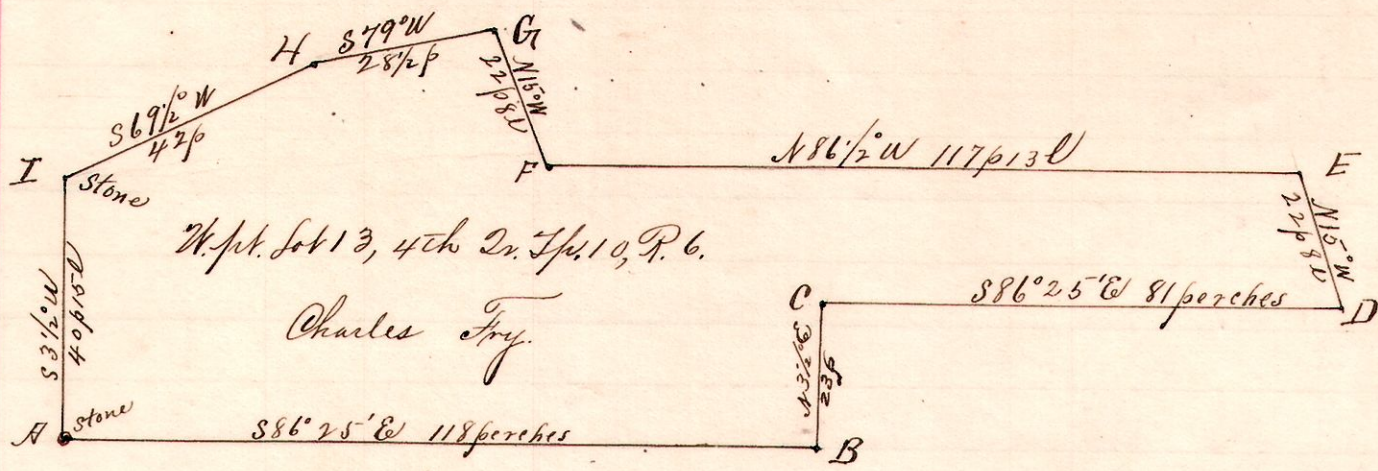 G
H S79°W
28½p
N15°W
22p8l
S69½°W
42p
I
Stone
F
N86½°W 117p13l
E
N15°W
22p8l
W. pt. Lot 13, 4th Qr. Tp. 10, R. 6.
S3½°W
40p15l
Charles Fry.
C
S86°25'E 81 perches
D
N3½°E
23p
A
Stone
S86°25'E 118 perches
B